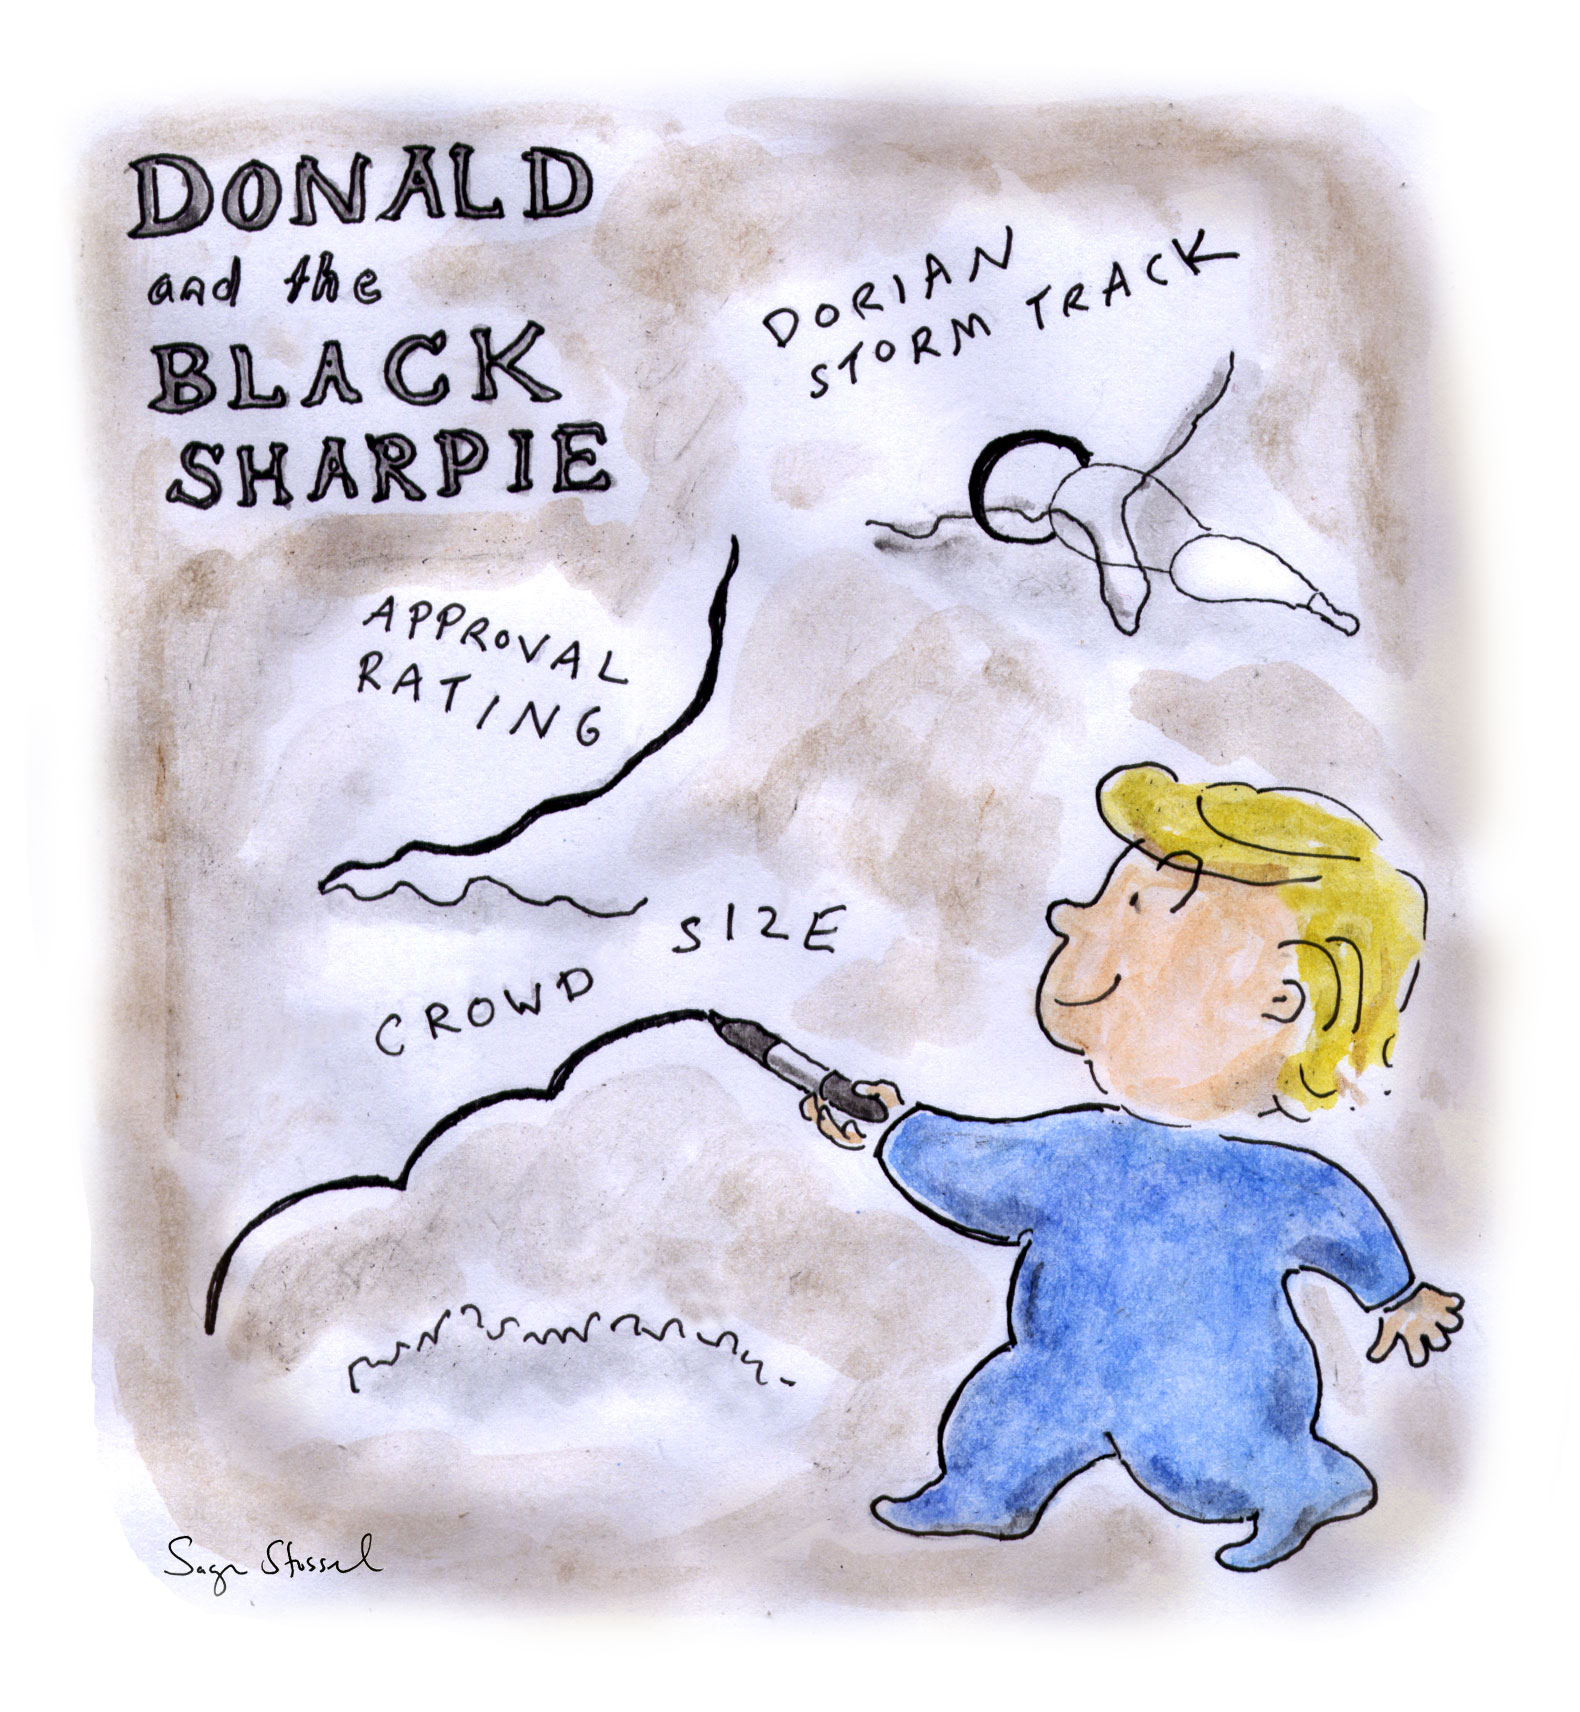 DONALD
and the
BLACK
SHARPIE
DORIAN
STORM TRACK
APPROVAL
RATING
CROWD SIZE
Sage Stossel